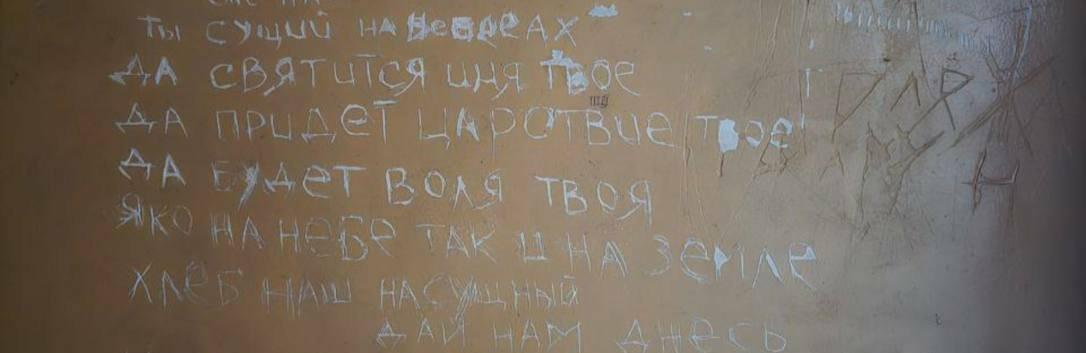 Ты сущий на небесах
ДА СВЯТИТСЯ ИМЯ ТВОЕ
ДА ПРИДЕТ ЦАРСТВИЕ ТВОЕ
ДА БУДЕТ ВОЛЯ ТВОЯ
ЯКО НА НЕБЕ ТАК И НА ЗЕМЛЕ
ХЛЕБ НАШ НАСУЩНЫЙ
ДАЙ НАМ ДНЕСЬ